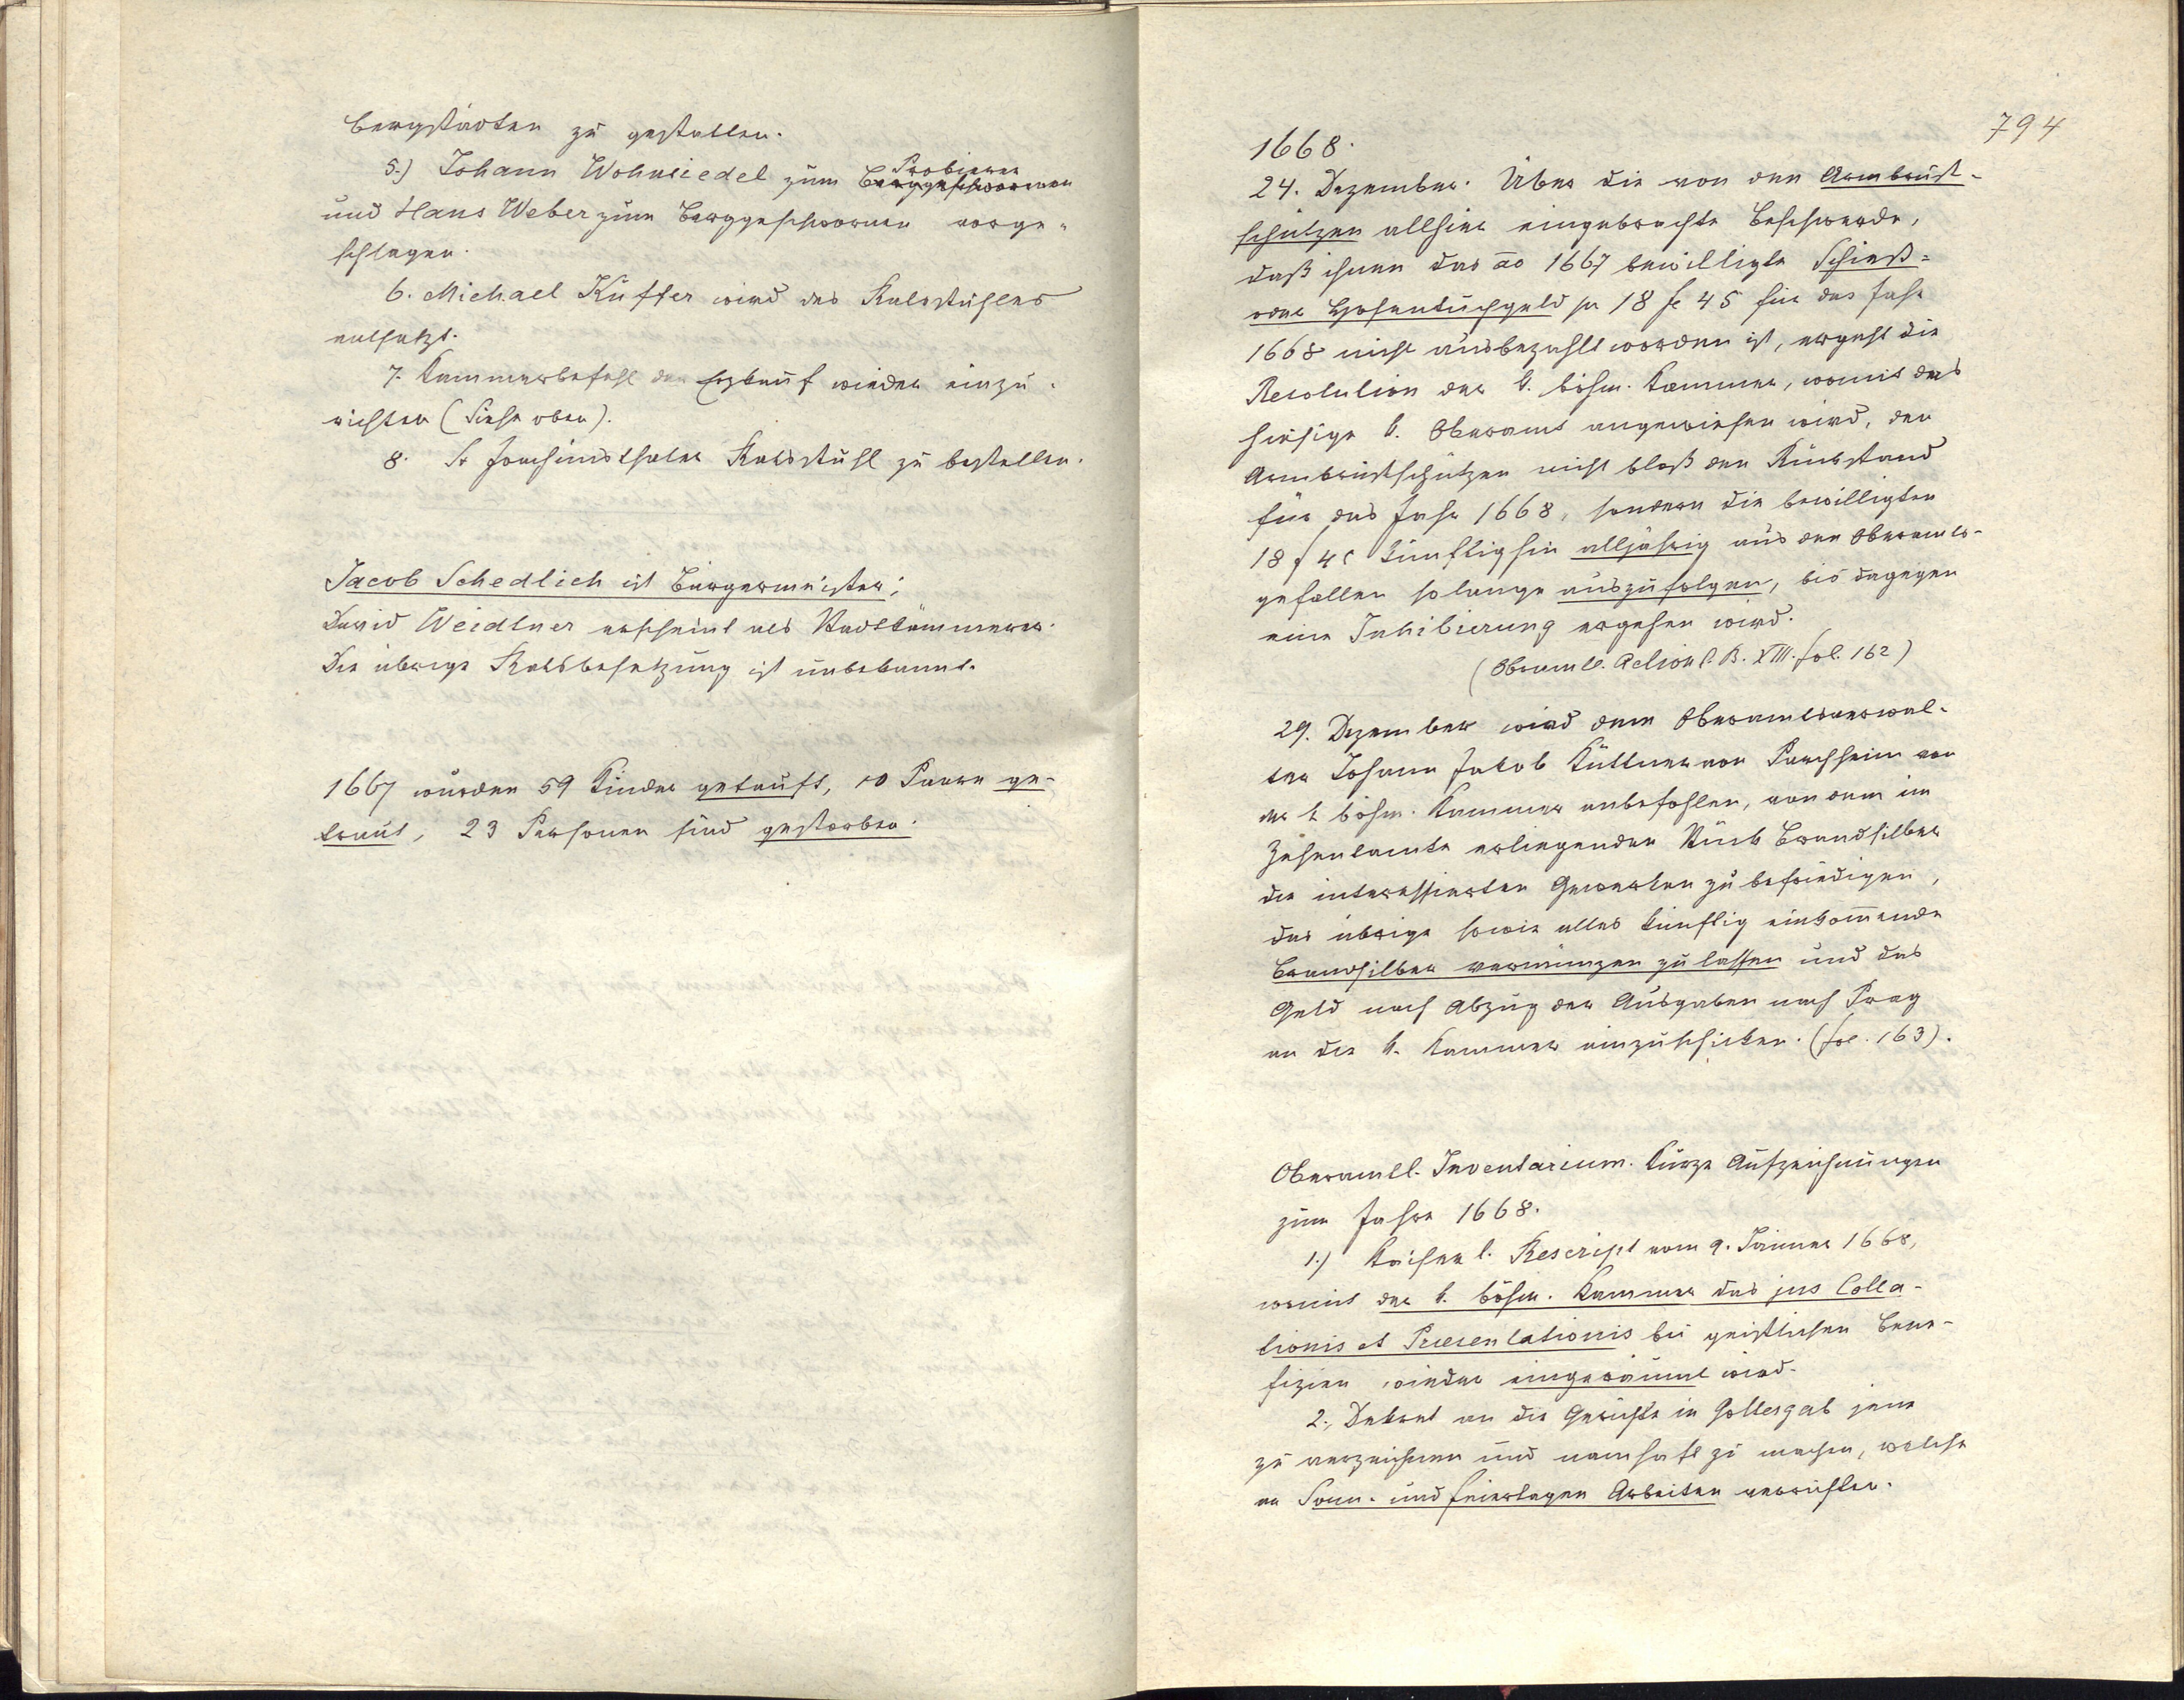 Bergstädten zu gestatten.
5.) Johann Wohnsiedel zum Probierer Berggeschwornen
und Hans Weber zum Berggeschwornen vorge-
schlagen.
6. Michael Küffer wird des Ratsstuhles
entsetzt.
7. Kammerbefehl den Erzkauf wieder einzu-
richten (Siehe oben).
8. St Joachimsthaler Ratsstuhl zu bestellen.
Jacob Schedlich ist Bürgermeister;
David Weidtner erscheint als Stadtkämmerer.
Die übrige Ratsbesetzung ist unbekannt.
1667 wurden 59 Kinder getauft, 10 Paare ge-
traut, 23 Personen sind gestorben.
794
1668.
24. Dezember. Über die von den Armbrust-
schützen allhier eingebrachte Beschwerde,
daß ihnen das ao 1667 bewilligte Schieß-
oder Hosentuchgeld pr 18 f 45 für das Jahr
1668 nicht ausbezahlt worden ist, ergeht die
Resolution der k. böhm. Kammer, womit das
hiesige k. Oberamt angewiesen wird, den
Armbrustschützen nicht bloß den Rückstand
für das Jahr 1668, sondern die bewilligten
18 f 45 künftighin alljährig aus den Oberamts-
gefällen solange auszufolgen, bis dagegen
eine Inhibierung ergehen wird.
(Oberamtl. Action B. XIII. fol. 162)
29. Dezember wird dem Oberamtsverwal-
ter Johann Jakob Küttner von Parchheim von
der k böhm. Kammer anbefohlen, von dem im
Zehentamte erliegenden Stück Brandsilber
die interessierten Gewerken zu befriedigen,
das übrige sowie alles künftig einkommende
Brandsilber vermünzen zu lassen und das
Geld nach Abzug der Ausgaben nach Prag
an die k. Kammer einzuschicken. (fol. 163).
Oberamtl. Inventarium. Kurze Aufzeichnungen
zum Jahre 1668.
1.) Kaiserl. Rescript vom 9. Jänner 1668,
womit der k. böhm. Kammer das jus Colla-
tionis et Præsentationis bei geistlichen Bene-
fizien wieder eingeräumt wird.
2., Dekret an die Gerichte in Gottesgab jene
zu verzeichnen und namhaft zu machen, welche
an Sonn- und Feiertagen Arbeiten verrichten.